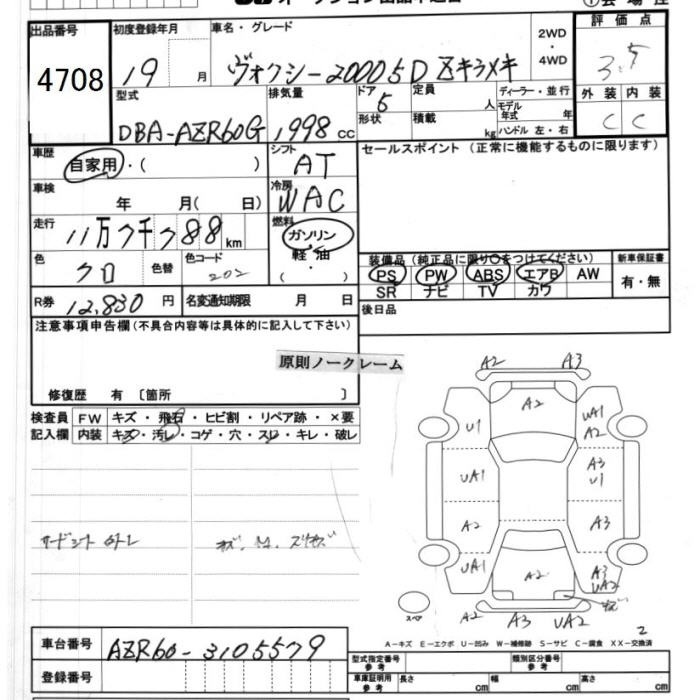 出品番号
4708
初度登録年月
19 月
車名・グレード
ヴォクシー2000 5D Zキラメキ
2WD
・
4WD
評価点
3.5
型式
DBA-AZR60G
排気量
1998 cc
ドア
5
形状
定員
人
積載
kg
ディーラー・並行
モデル年式 年
ハンドル 左・右
外装 内装
C C
車歴
自家用・( )
シフト
AT
セールスポイント(正常に機能するものに限ります)
車検
年 月( 日)
冷房
WAC
走行
11万7千788 km
燃料
ガソリン
軽油
・
( )
色
クロ
色替
色コード
202
装備品(純正品に限り○をつけてください)
PS PW ABS エアB AW
SR ナビ TV カワ
新車保証書
有・無
R券 12,830 円
名変通知期限 月 日
後日品
注意事項申告欄(不具合内容等は具体的に記入して下さい)
原則ノークレーム
修復歴 有〔箇所 〕
検査員
記入欄
FW キズ・飛石・ヒビ割・リペア跡・×要
内装 キズ・汚レ・コゲ・穴・スレ・キレ・破レ
A2 A3
A2
U1
UA1
A2
UA1
A3
U1
A2
A3
UA1
A2
A3
UA2
スペア
A2 A3 UA2
2
A-キズ E-エクボ U-凹み W-補修跡 S-サビ C-腐食 XX-交換済
車台番号
AZR60-3105579
登録番号
型式指定番号
参考
類別区分番号
参考
車庫証明用
参考
長さ cm
幅 cm
高さ cm